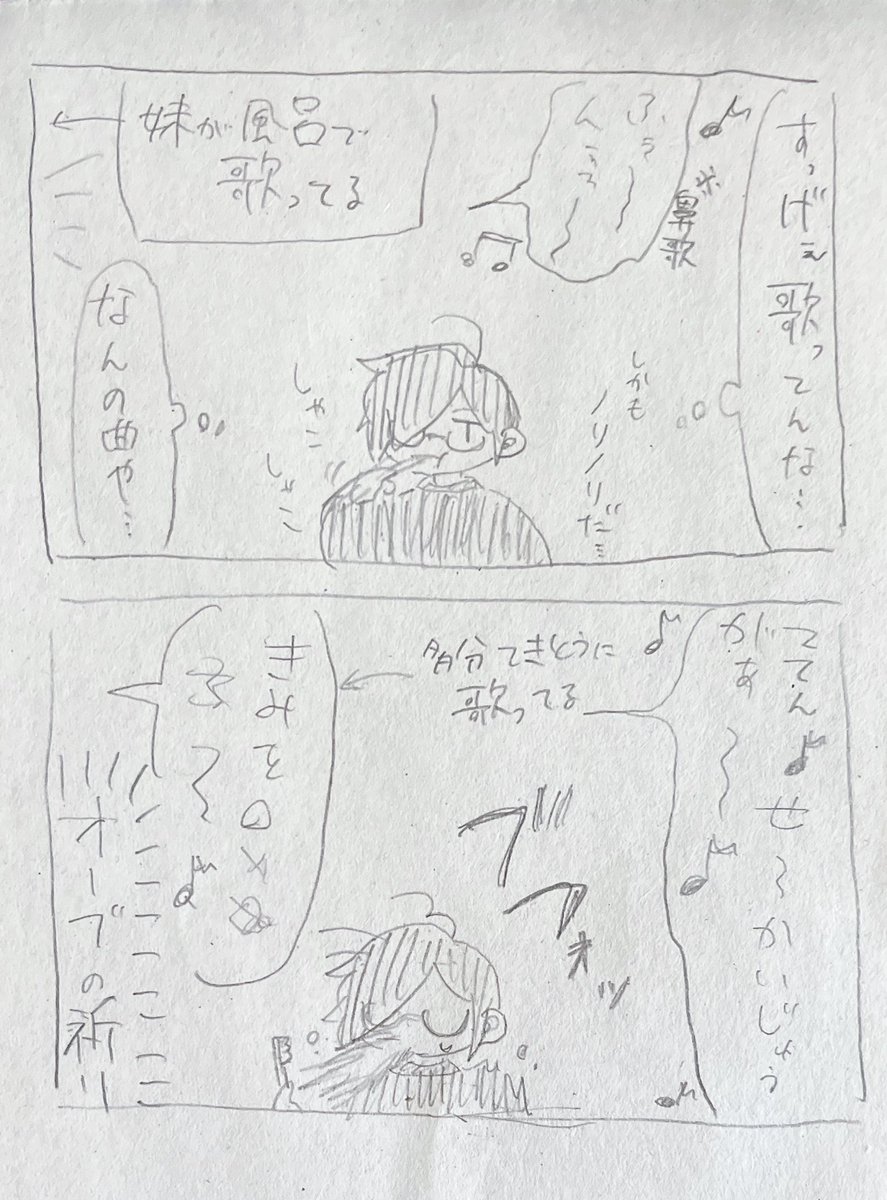 すっげぇ歌ってんな…
ふぅ〜
んぅぅ〜
※鼻歌
しかも
ノリノリだ…
妹が風呂で
歌ってる
しゃこ
しゃこ
なんの曲や…
ててん♪せろかいじゅう
があ〜♪
多分てきとうに
歌ってる
ブフォッ
きみを〇×
ふ〜♪
オーブの祈り